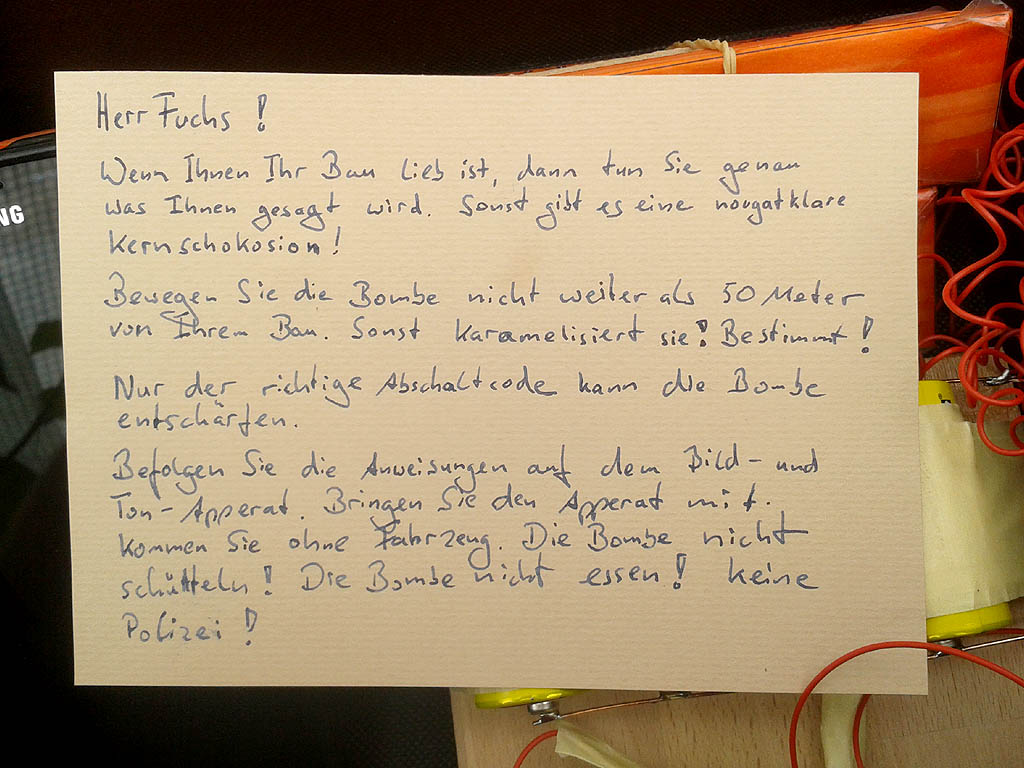 Herr Fuchs!
Wenn Ihnen Ihr Bau lieb ist, dann tun Sie genau
was Ihnen gesagt wird. Sonst gibt es eine nougatklare
Kernschokosion!
Bewegen Sie die Bombe nicht weiter als 50 Meter
von Ihrem Bau. Sonst karamelisiert sie! Bestimmt!
Nur der richtige Abschaltcode kann die Bombe
entschärfen.
Befolgen Sie die Anweisungen auf dem Bild- und
Ton-Apperat. Bringen Sie den Apperat mit.
Kommen Sie ohne Fahrzeug. Die Bombe nicht
schütteln! Die Bombe nicht essen! Keine
Polizei!
NG